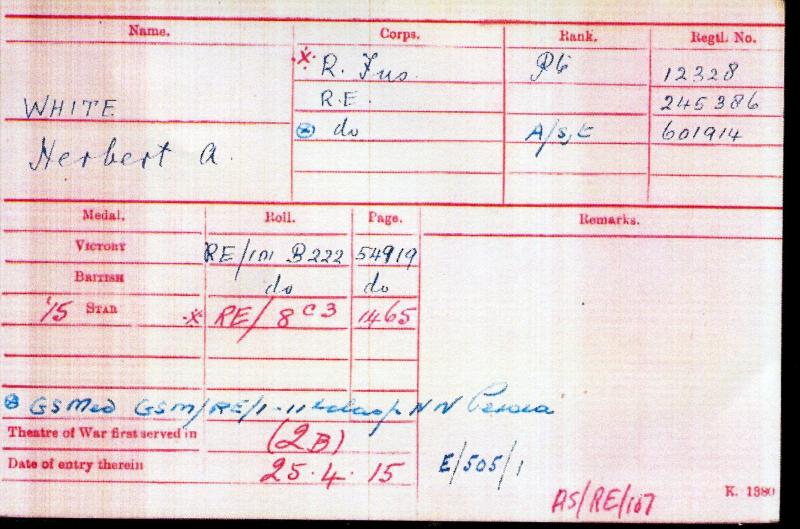 Name. Corps. Rank. Regtl. No.
R. Fus. Pte 12328
WHITE R.E. 245386
Herbert A. do A/S, 601914
Medal. Roll. Page. Remarks.
VICTORY RE/101 B222 54919
BRITISH do do
'15 STAR RE/8 C3 1465
GS Med GSM/RE/1-11 clasp N W Persia
Theatre of War first served in (2B)
Date of entry therein 25.4.15 E/505/1
AS/RE/107 K. 1380